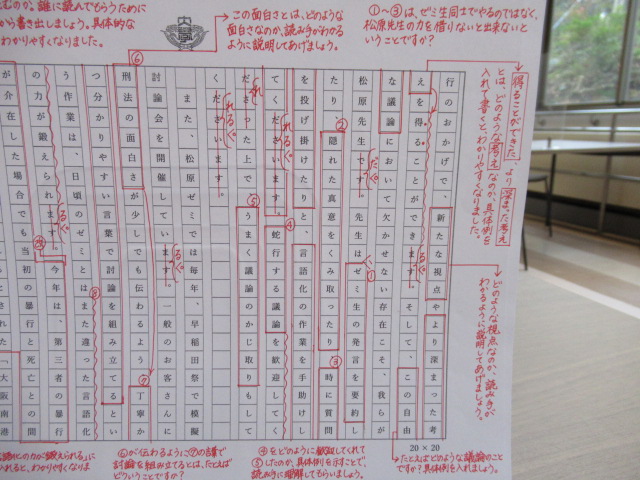 ①〜③は、ゼミ生同士でやるのではなく、
松原先生の力を借りないと出来ないと
いうことですか?
この面白さとは、どのような
面白さなのか、読み手がわかる
ように説明してあげましょう。
むのか、誰に読んでもらうために
から書き出しましょう。具体的な
わかりやすくなりました。
得ることができた、より深まった考え
とは、どのような考えなのか、具体例を
入れて書くと、わかりやすくなりました。
どのような視点なのか、読み手が
わかるように説明してあげましょう。
行のおかげで、新たな視点やより深まった考
えを得ることができます。そして、この自由
な議論において欠かせない存在こそ、我らが
松原先生です。先生はゼミ生の発言を要約し
たり隠れた真意をくみ取ったり、時に質問
を投げ掛けたりと、言語化の作業を手助けし
てくださいます。蛇行する議論を歓迎してく
ださった上で、うまく議論のかじ取りもして
くださいます。
また、松原ゼミでは毎年、早稲田祭で模擬
討論会を開催しています。一般のお客さんに
刑法の面白さが少しでも伝わるよう、丁寧か
つ分かりやすい言葉で討論を組み立てるとい
う作業は、日頃のゼミとはまた違った言語化
の力が鍛えられます。今年は、第三者の暴行
が介在した場合でも当初の暴行と死亡との間
大阪南港
20×20
たとえばどのような議論のこと
ですか?具体例を入れましょう。
④をどのように歓迎してくれて
⑤したのか、具体例を示すことで、
読み手に理解してもらいましょう。
⑥が伝わるように⑦の言葉で
討論を組み立てるとは、たとえば
どういうことですか?
の力が鍛えられる」に
入れると、わかりやすくなりま